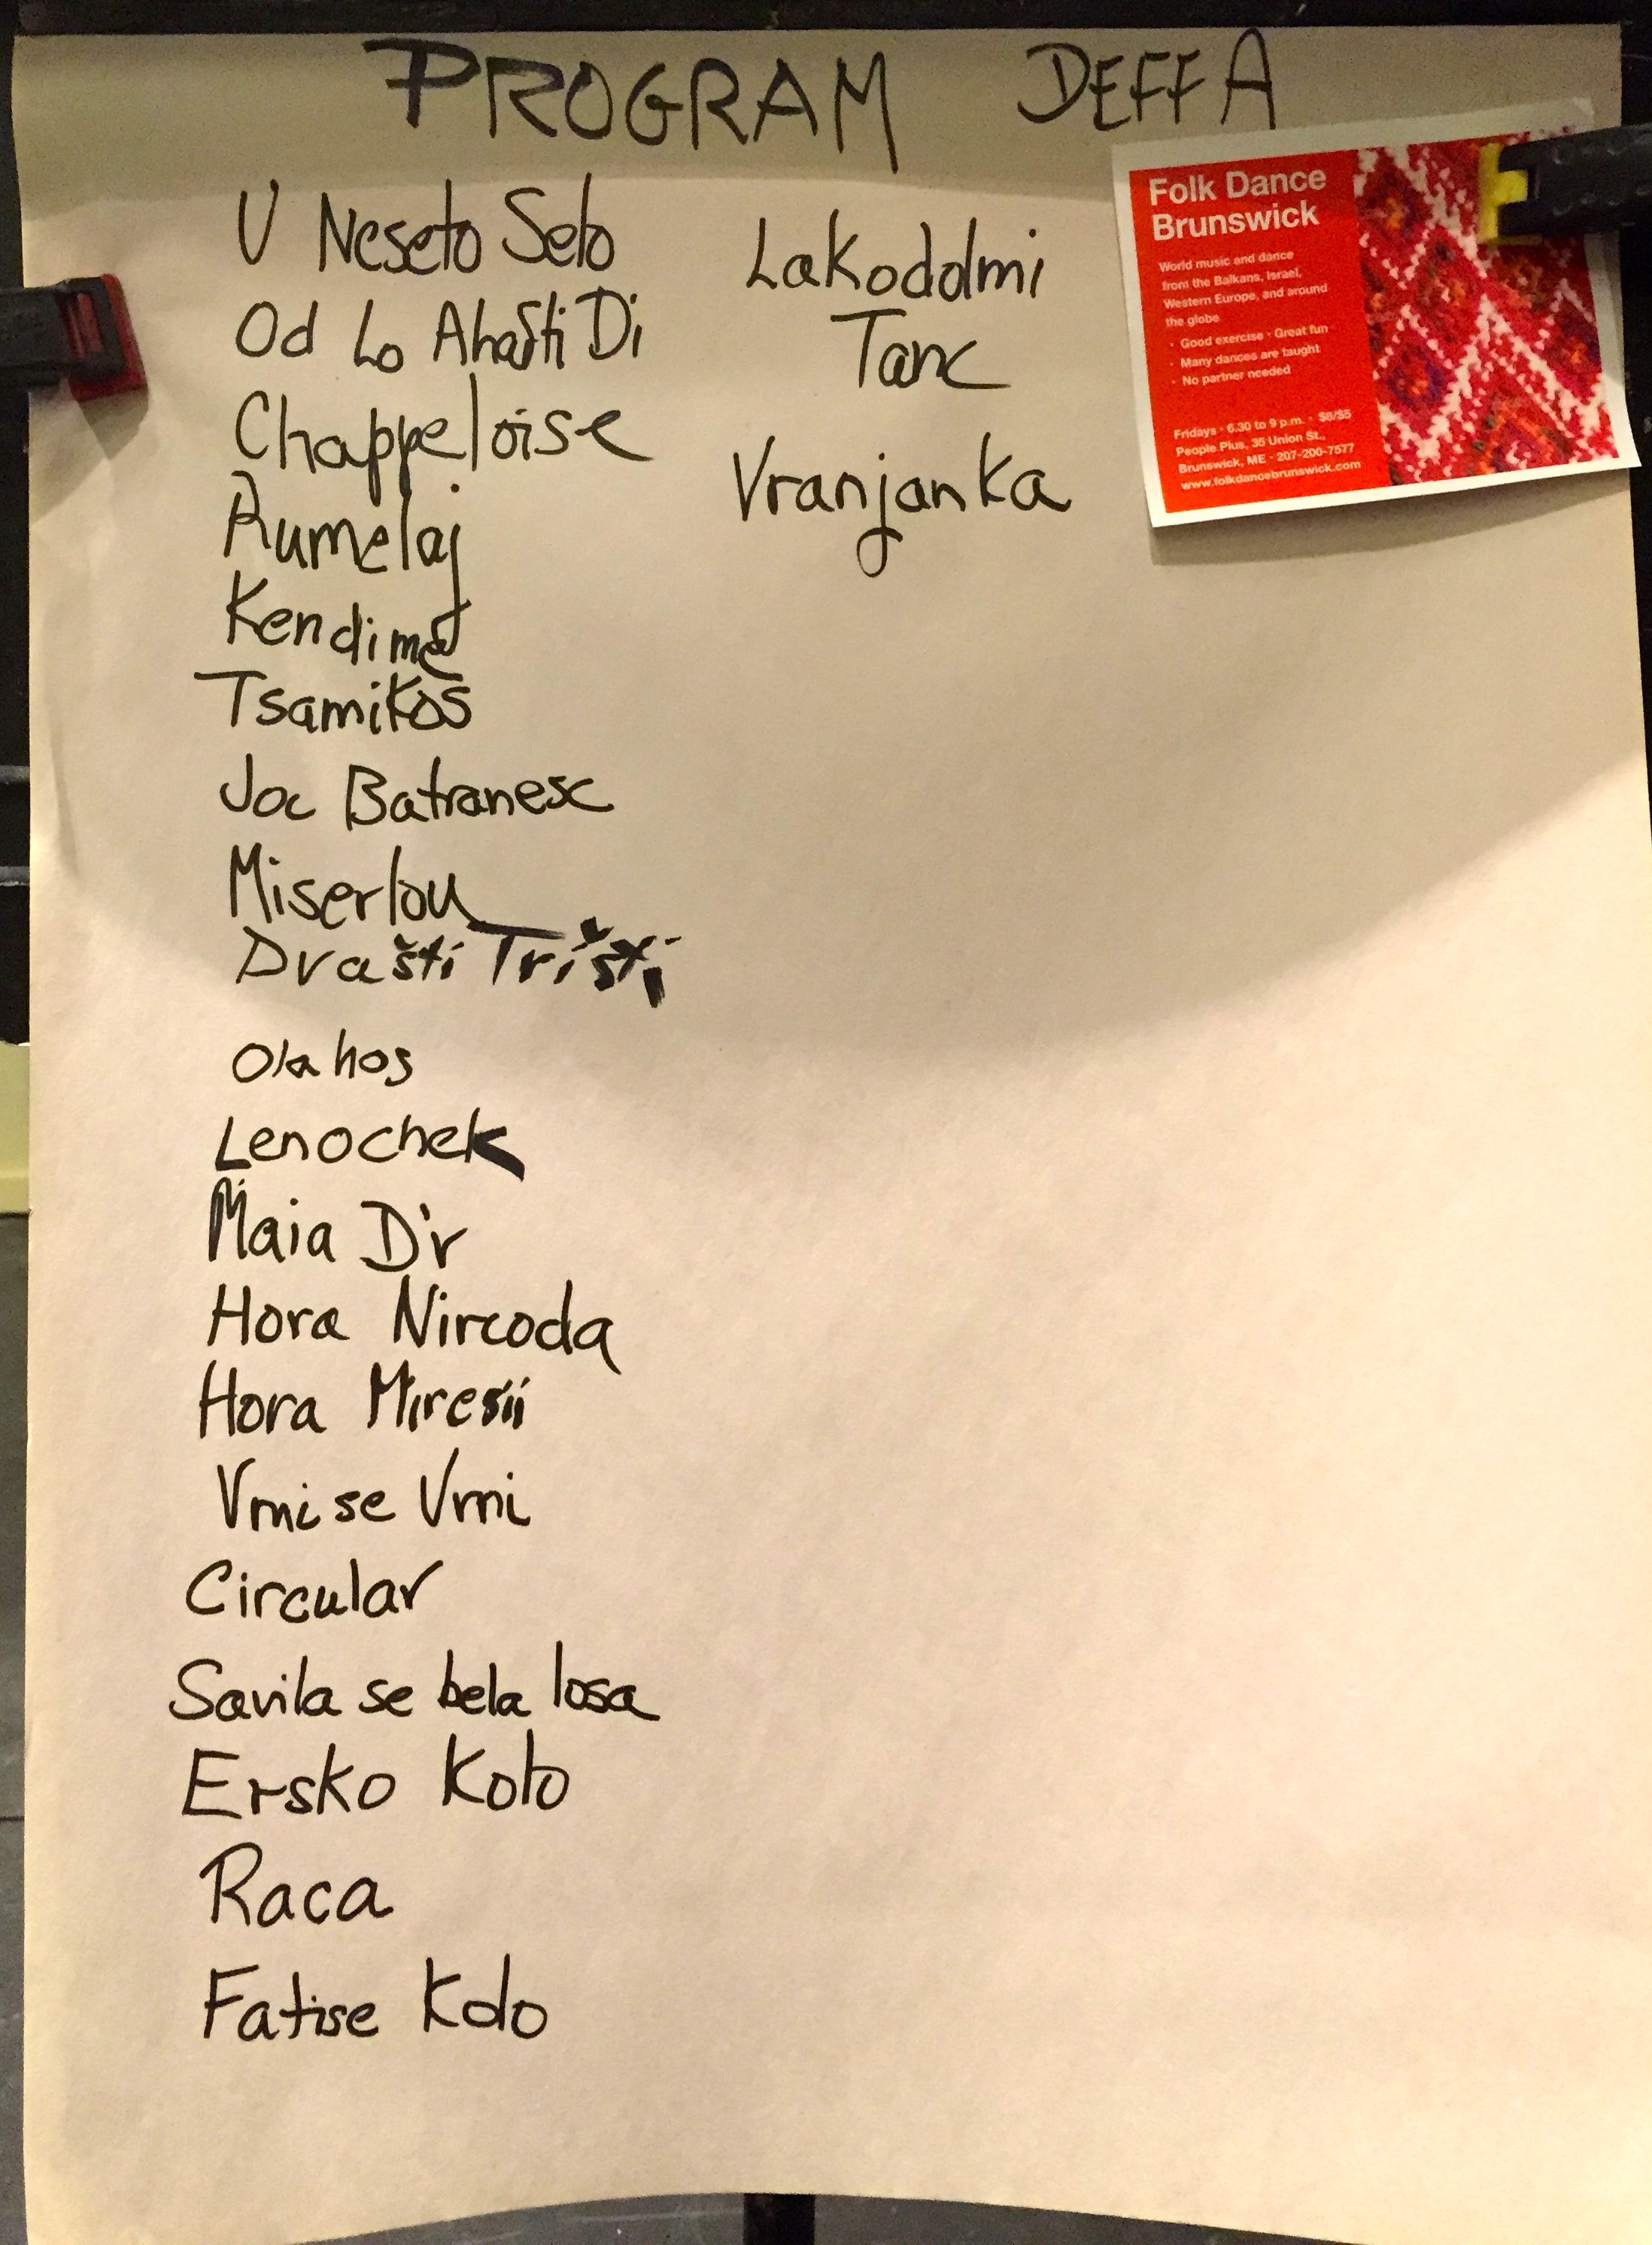 PROGRAM DEFFA
U Neseto Selo
Od Lo Ahavti Di
Chappeloise
Rumelaj
Kendimé
Tsamikos
Joc Batranesc
Miserlou
Dvašti Trišti
Olahos
Lenochek
Maia D'r
Hora Nircoda
Hora Miresii
Vrni se Vrni
Circular
Savila se bela losa
Ersko Kolo
Raca
Fatise Kolo
Lakodolmi
Tanc
Vranjanka
Folk Dance
Brunswick
World music and dance
from the Balkans, Israel,
Western Europe, and around
the globe
· Good exercise · Great fun
· Many dances are taught
· No partner needed
Fridays · 6.30 to 9 p.m. · $8/$5
People Plus, 35 Union St.,
Brunswick, ME · 207-200-7577
www.folkdancebrunswick.com